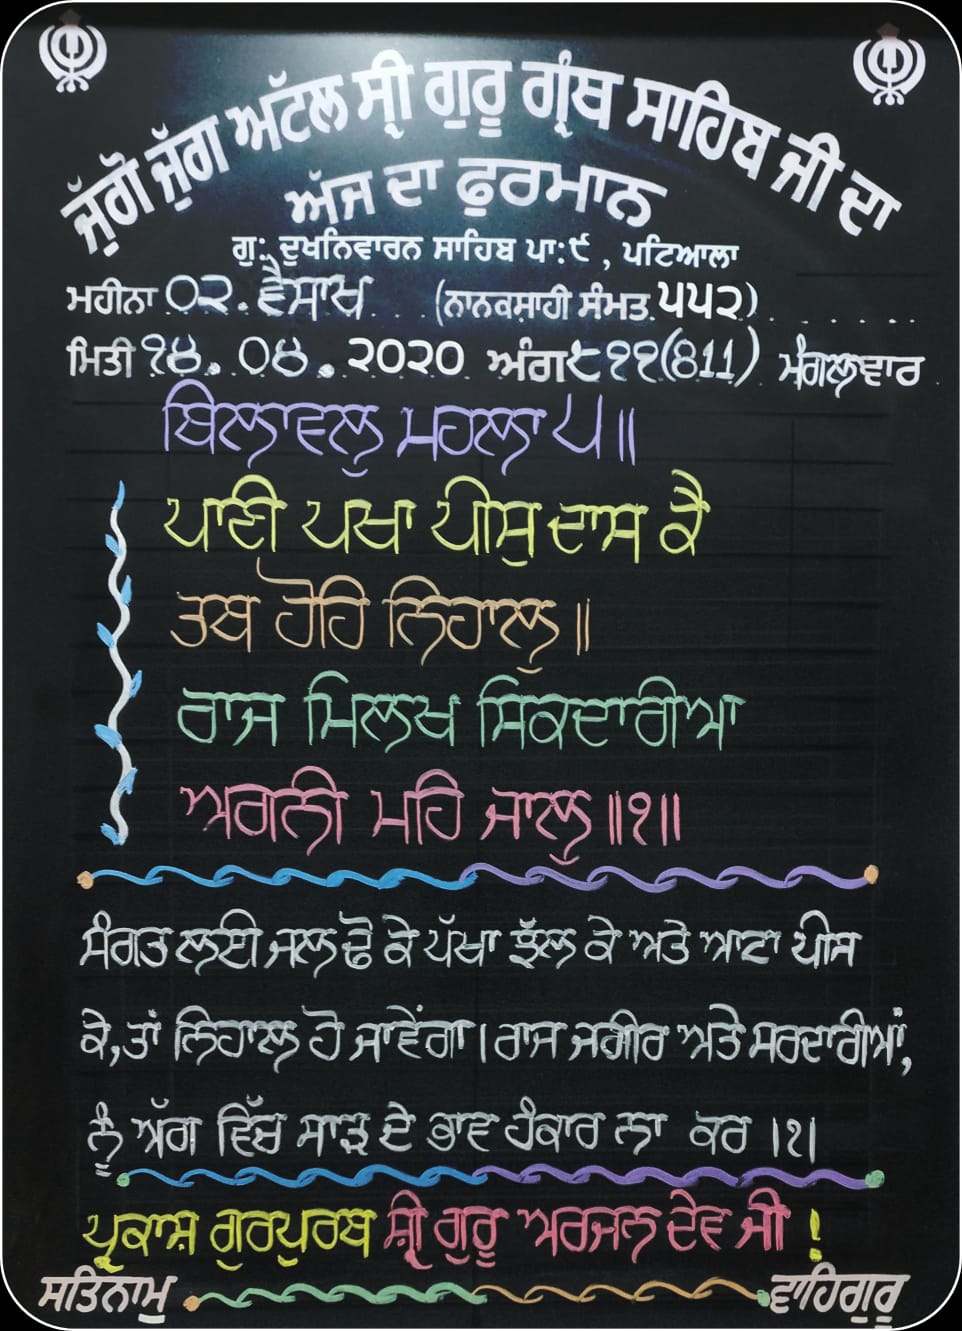 ਜੁੱਗੋ ਜੁੱਗ ਅਟੱਲ ਸ੍ਰੀ ਗੁਰੂ ਗ੍ਰੰਥ ਸਾਹਿਬ ਜੀ ਦਾ
ਅੱਜ ਦਾ ਫੁਰਮਾਨ
ਗੁ: ਦੁਖਨਿਵਾਰਨ ਸਾਹਿਬ ਪਾ:੯ , ਪਟਿਆਲਾ
ਮਹੀਨਾ ੦੨. ਵੈਸਾਖ (ਨਾਨਕਸ਼ਾਹੀ ਸੰਮਤ ੫੫੨)
ਮਿਤੀ ੧੪. ੦੪. ੨੦੨੦ ਅੰਗ ੮੧੧(811) ਮੰਗਲਵਾਰ
ਬਿਲਾਵਲੁ ਮਹਲਾ ੫॥
ਪਾਣੀ ਪਖਾ ਪੀਸੁ ਦਾਸ ਕੈ
ਤਬ ਹੋਹਿ ਨਿਹਾਲੁ॥
ਰਾਜ ਮਿਲਖ ਸਿਕਦਾਰੀਆ
ਅਗਨੀ ਮਹਿ ਜਾਲੁ॥੧॥
ਸੰਗਤ ਲਈ ਜਲ ਢੋ ਕੇ ਪੱਖਾ ਝੱਲ ਕੇ ਅਤੇ ਆਟਾ ਪੀਸ
ਕੇ,ਤਾਂ ਨਿਹਾਲ ਹੋ ਜਾਵੇਂਗਾ। ਰਾਜ ਜਗੀਰ ਅਤੇ ਸਰਦਾਰੀਆਂ,
ਨੂੰ ਅੱਗ ਵਿੱਚ ਸਾੜ ਦੇ ਭਾਵ ਹੰਕਾਰ ਨਾ ਕਰ ।੧।
ਪ੍ਰਕਾਸ਼ ਗੁਰਪੁਰਬ ਸ਼੍ਰੀ ਗੁਰੂ ਅਰਜਨ ਦੇਵ ਜੀ !
ਸਤਿਨਾਮੁ ਵਾਹਿਗੁਰੂ